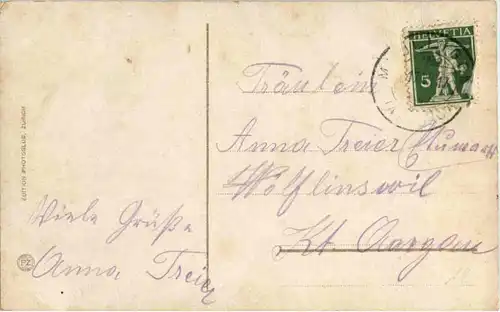 EDITION PHOTOGLOB, ZÜRICH
PZ
Viele Grüße
Anna Treier
HELVETIA
5
Fräulein
Anna Treier
Wölflinswil
Kt. Aargau